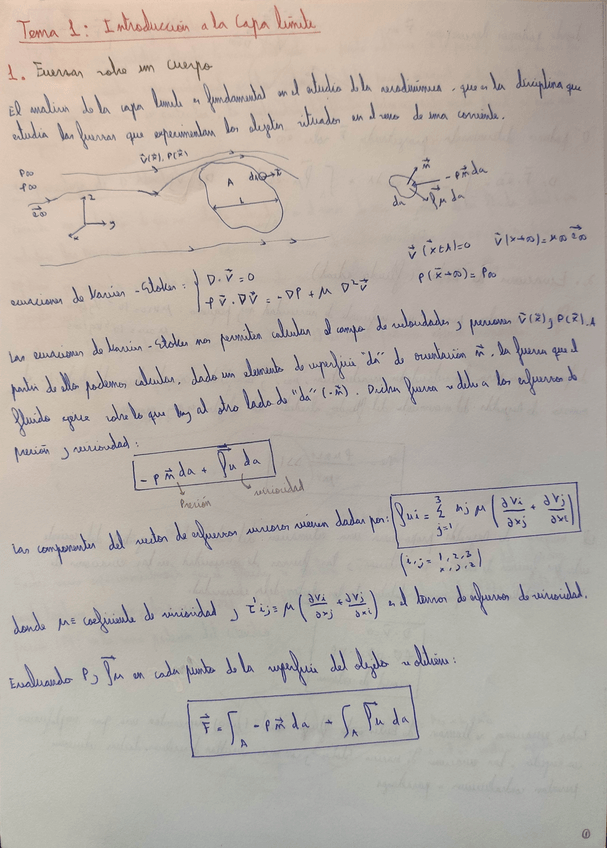 Tema 1: Introducción a la Capa límite
1. Fuerzas sobre un cuerpo
El análisis de la capa límite es fundamental en el estudio de la aerodinámica, que es la disciplina que
estudia las fuerzas que experimentan los objetos situados en el seno de una corriente.
P∞
ρ∞
v⃗(x⃗), P(x⃗)
A
da
L
z
y
x
n⃗
-p n⃗ da
da
v⃗(x⃗∈A)=0
P(x⃗→∞)=P∞
ecuaciones de Navier-Stokes: { ∇·v⃗ = 0
ρ v⃗·∇v⃗ = -∇P + μ ∇²v⃗
Las ecuaciones de Navier-Stokes nos permiten calcular el campo de velocidades y presiones v⃗(x⃗) y P(x⃗). A
partir de ellas podemos calcular, dado un elemento de superficie "da" de orientación n⃗, la fuerza que el
fluido ejerce sobre lo que hay al otro lado de "da" (-n⃗). Dicha fuerza se debe a los esfuerzos de
presión y viscosidad:
-p n⃗ da + f⃗μ da
Presión
viscosidad
Las componentes del vector de esfuerzos viscosos vienen dadas por: fμi = Σ_{j=1}^{3} nj μ (∂vi/∂xj + ∂vj/∂xi)
(i,j = 1,2,3
x,y,z)
donde μ ≡ coeficiente de viscosidad y τ'ij = μ(∂vi/∂xj + ∂vj/∂xi) es el tensor de esfuerzos de viscosidad.
Evaluando P y f⃗μ en cada punto de la superficie del objeto se obtiene:
F⃗ = ∫_A -p n⃗ da + ∫_A f⃗μ da
①